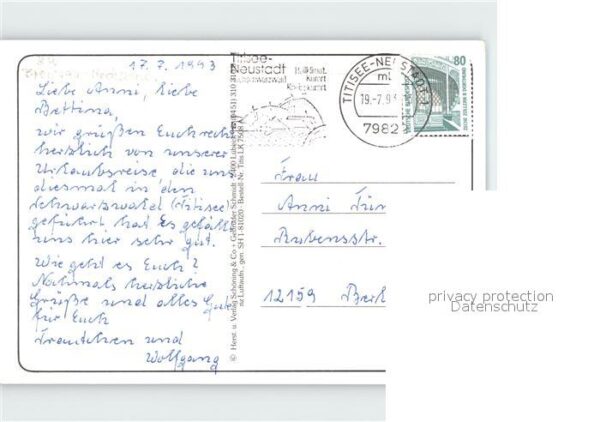 17.7.1993
Liebe Anni, liebe
Bettina,
wir grüßen Euch recht
herzlich von unserer
Urlaubsreise, die uns
diesmal in den
Schwarzwald (Titisee)
geführt hat. Es gefällt
uns hier sehr gut.
Wie geht es Euch?
Nochmals herzliche
Grüße und alles Gute
für Euch
Trautchen und
Wolfgang
Titisee-
Neustadt
Schwarzwald
Heilklimat.
Kurort
Kneippkurort
TITISEE-NEUSTADT 1
ml
19.-7.93
7982
80
DEUTSCHE BUNDESPOST
Frau
Anni
Rubensstr.
12159 Berl
© Herst. u. Verlag Schöning & Co + Gebrüder Schmidt
Bestell-Nr. Titis LK
privacy protection
Datenschutz